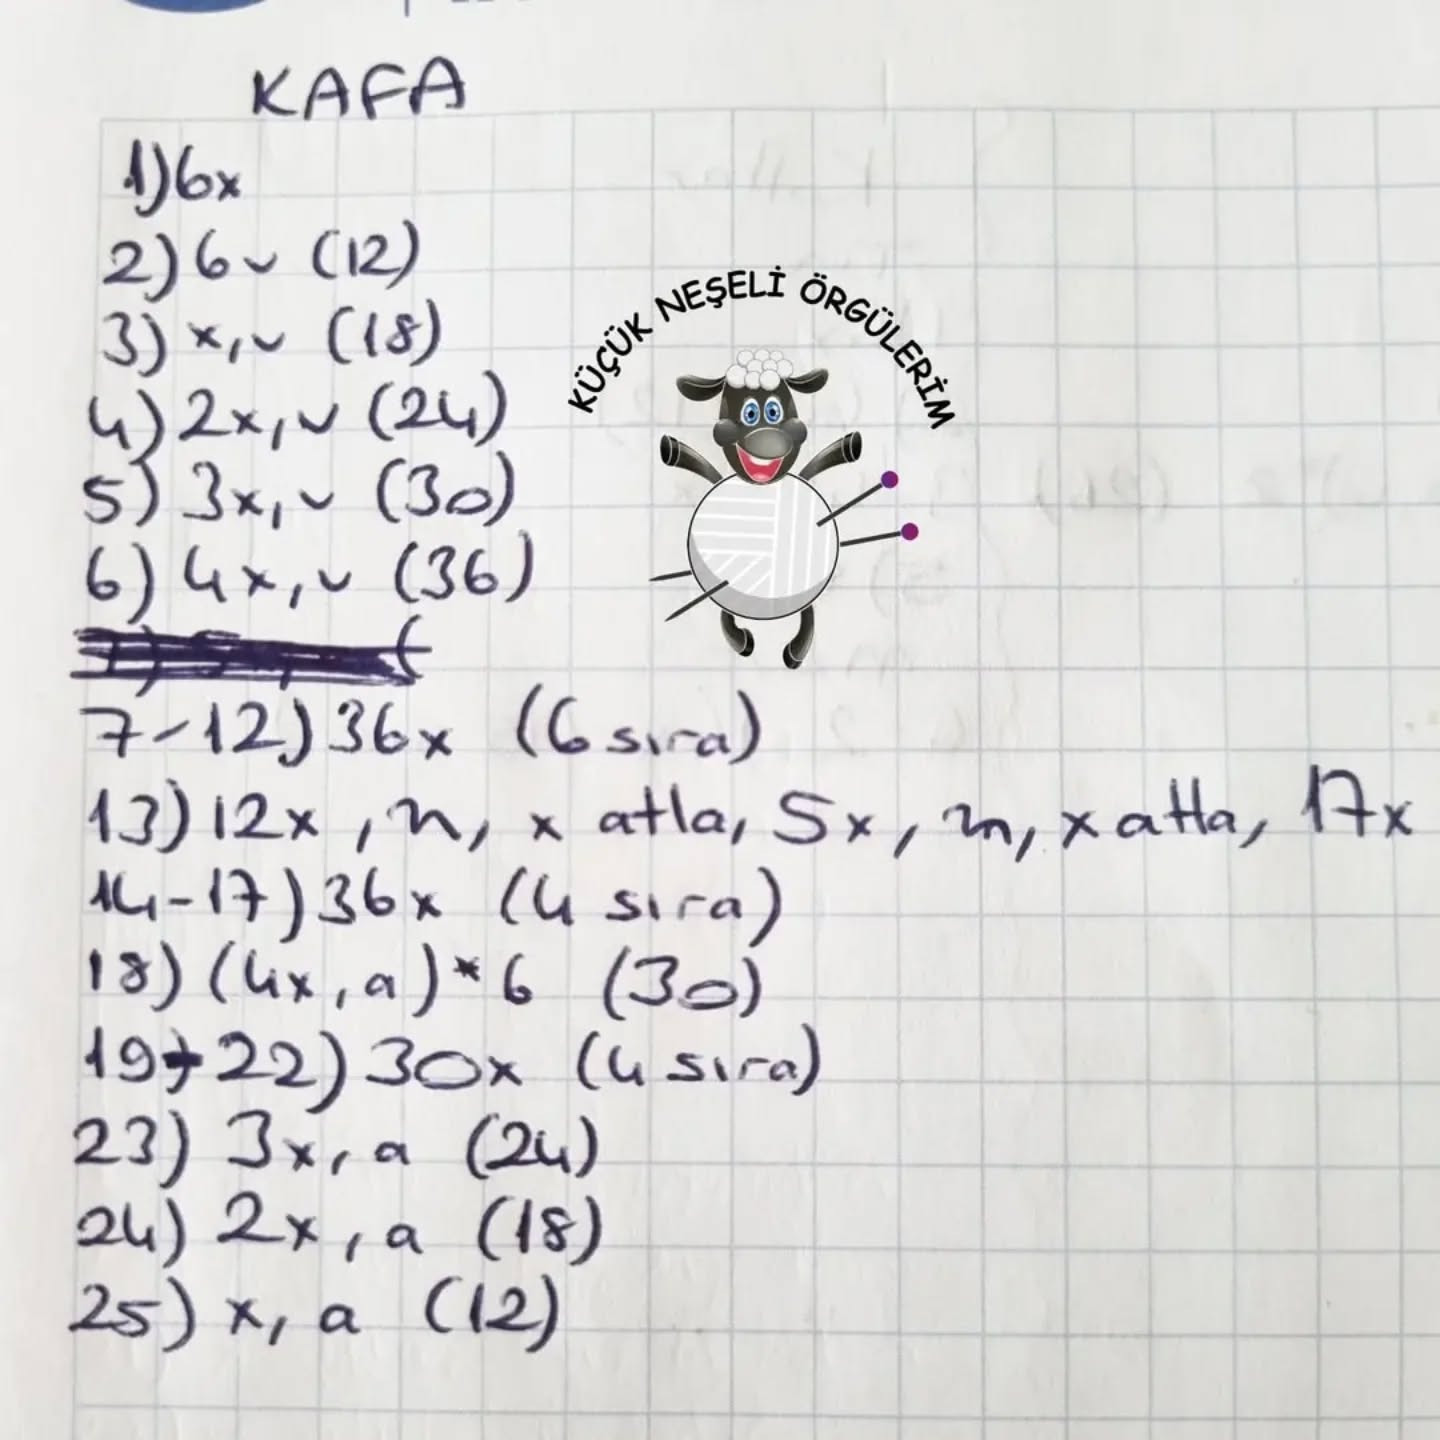 KAFA
1) 6x
2) 6v (12)
3) x, v (18)
4) 2x, v (24)
5) 3x, v (30)
6) 4x, v (36)
KÜÇÜK NEŞELİ ÖRGÜLERİM
7-12) 36x (6 sıra)
13) 12x, n, x atla, 5x, n, x atla, 17x
14-17) 36x (4 sıra)
18) (4x, a) * 6 (30)
19-22) 30x (4 sıra)
23) 3x, a (24)
24) 2x, a (18)
25) x, a (12)